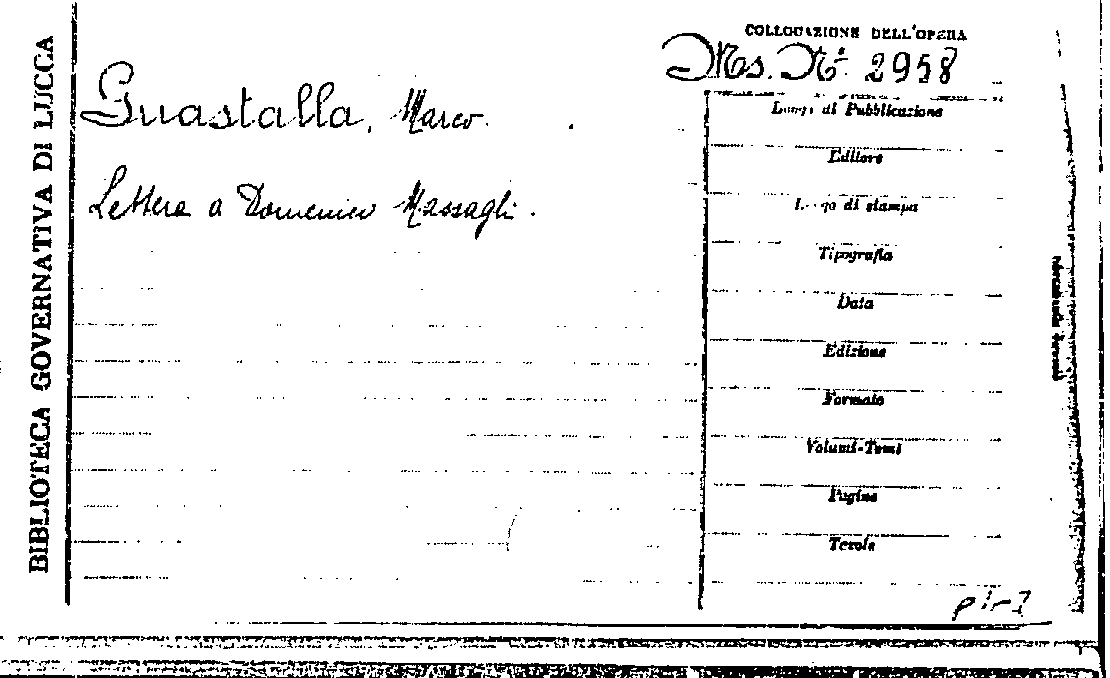 BIBLIOTECA GOVERNATIVA DI LUCCA
COLLOCAZIONE DELL'OPERA
Ms. N° 2958
Guastalla, Marco.
Lettera a Domenico Massagli.
Luogo di Pubblicazione
Editore
Luogo di stampa
Tipografia
Data
Edizione
Formato
Volumi-Tomi
Pagine
Tavole